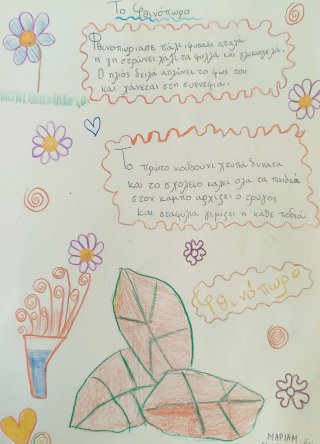 Το Φθινόπωρο
Φθινοπώριασε πάλι φυσάει απαλά
η γη στρώνει χαλί τα φύλλα και γλυκογελά.
Ο ήλιος δειλά απλώνει το φως του
και χάνεται στη συννεφιά.
Το πρώτο κουδούνι χτυπά δυνατά
και το σχολείο καλεί όλα τα παιδιά
στον κάμπο αρχίζει ο τρύγος
και σταφύλια γεμίζει η κάθε ποδιά
Φθινόπωρο
ΜΑΡΙΑΜ